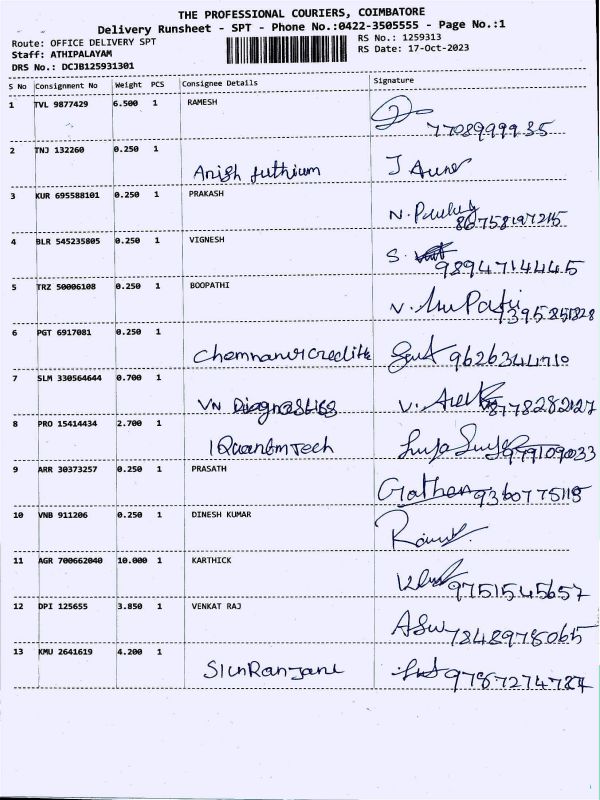 THE PROFESSIONAL COURIERS, COIMBATORE
Delivery Runsheet - SPT - Phone No.:0422-3505555 - Page No.:1
Route: OFFICE DELIVERY SPT
Staff: ATHIPALAYAM
DRS No.: DCJB125931301
RS No.: 1259313
RS Date: 17-Oct-2023
S No Consignment No Weight PCS Consignee Details Signature
1 TVL 9877429 6.500 1 RAMESH
7708999935
2 TNJ 132260 0.250 1
Anish
3 KUR 695588101 0.250 1 PRAKASH
N.
4 BLR 545235805 0.250 1 VIGNESH
S. 9894714445
5 TRZ 50006108 0.250 1 BOOPATHI
6 PGT 6917081 0.250 1
9626344710
7 SLM 330564644 0.700 1
VN Diagnostics V. 8778282127
8 PRO 15414434 2.700 1
IQuantm Tech
9 ARR 30373257 0.250 1 PRASATH
9360775118
10 VNB 911206 0.250 1 DINESH KUMAR
11 AGR 700662040 10.000 1 KARTHICK
9751545657
12 DPI 125655 3.850 1 VENKAT RAJ
7848978065
13 KMU 2641619 4.200 1
9787274787